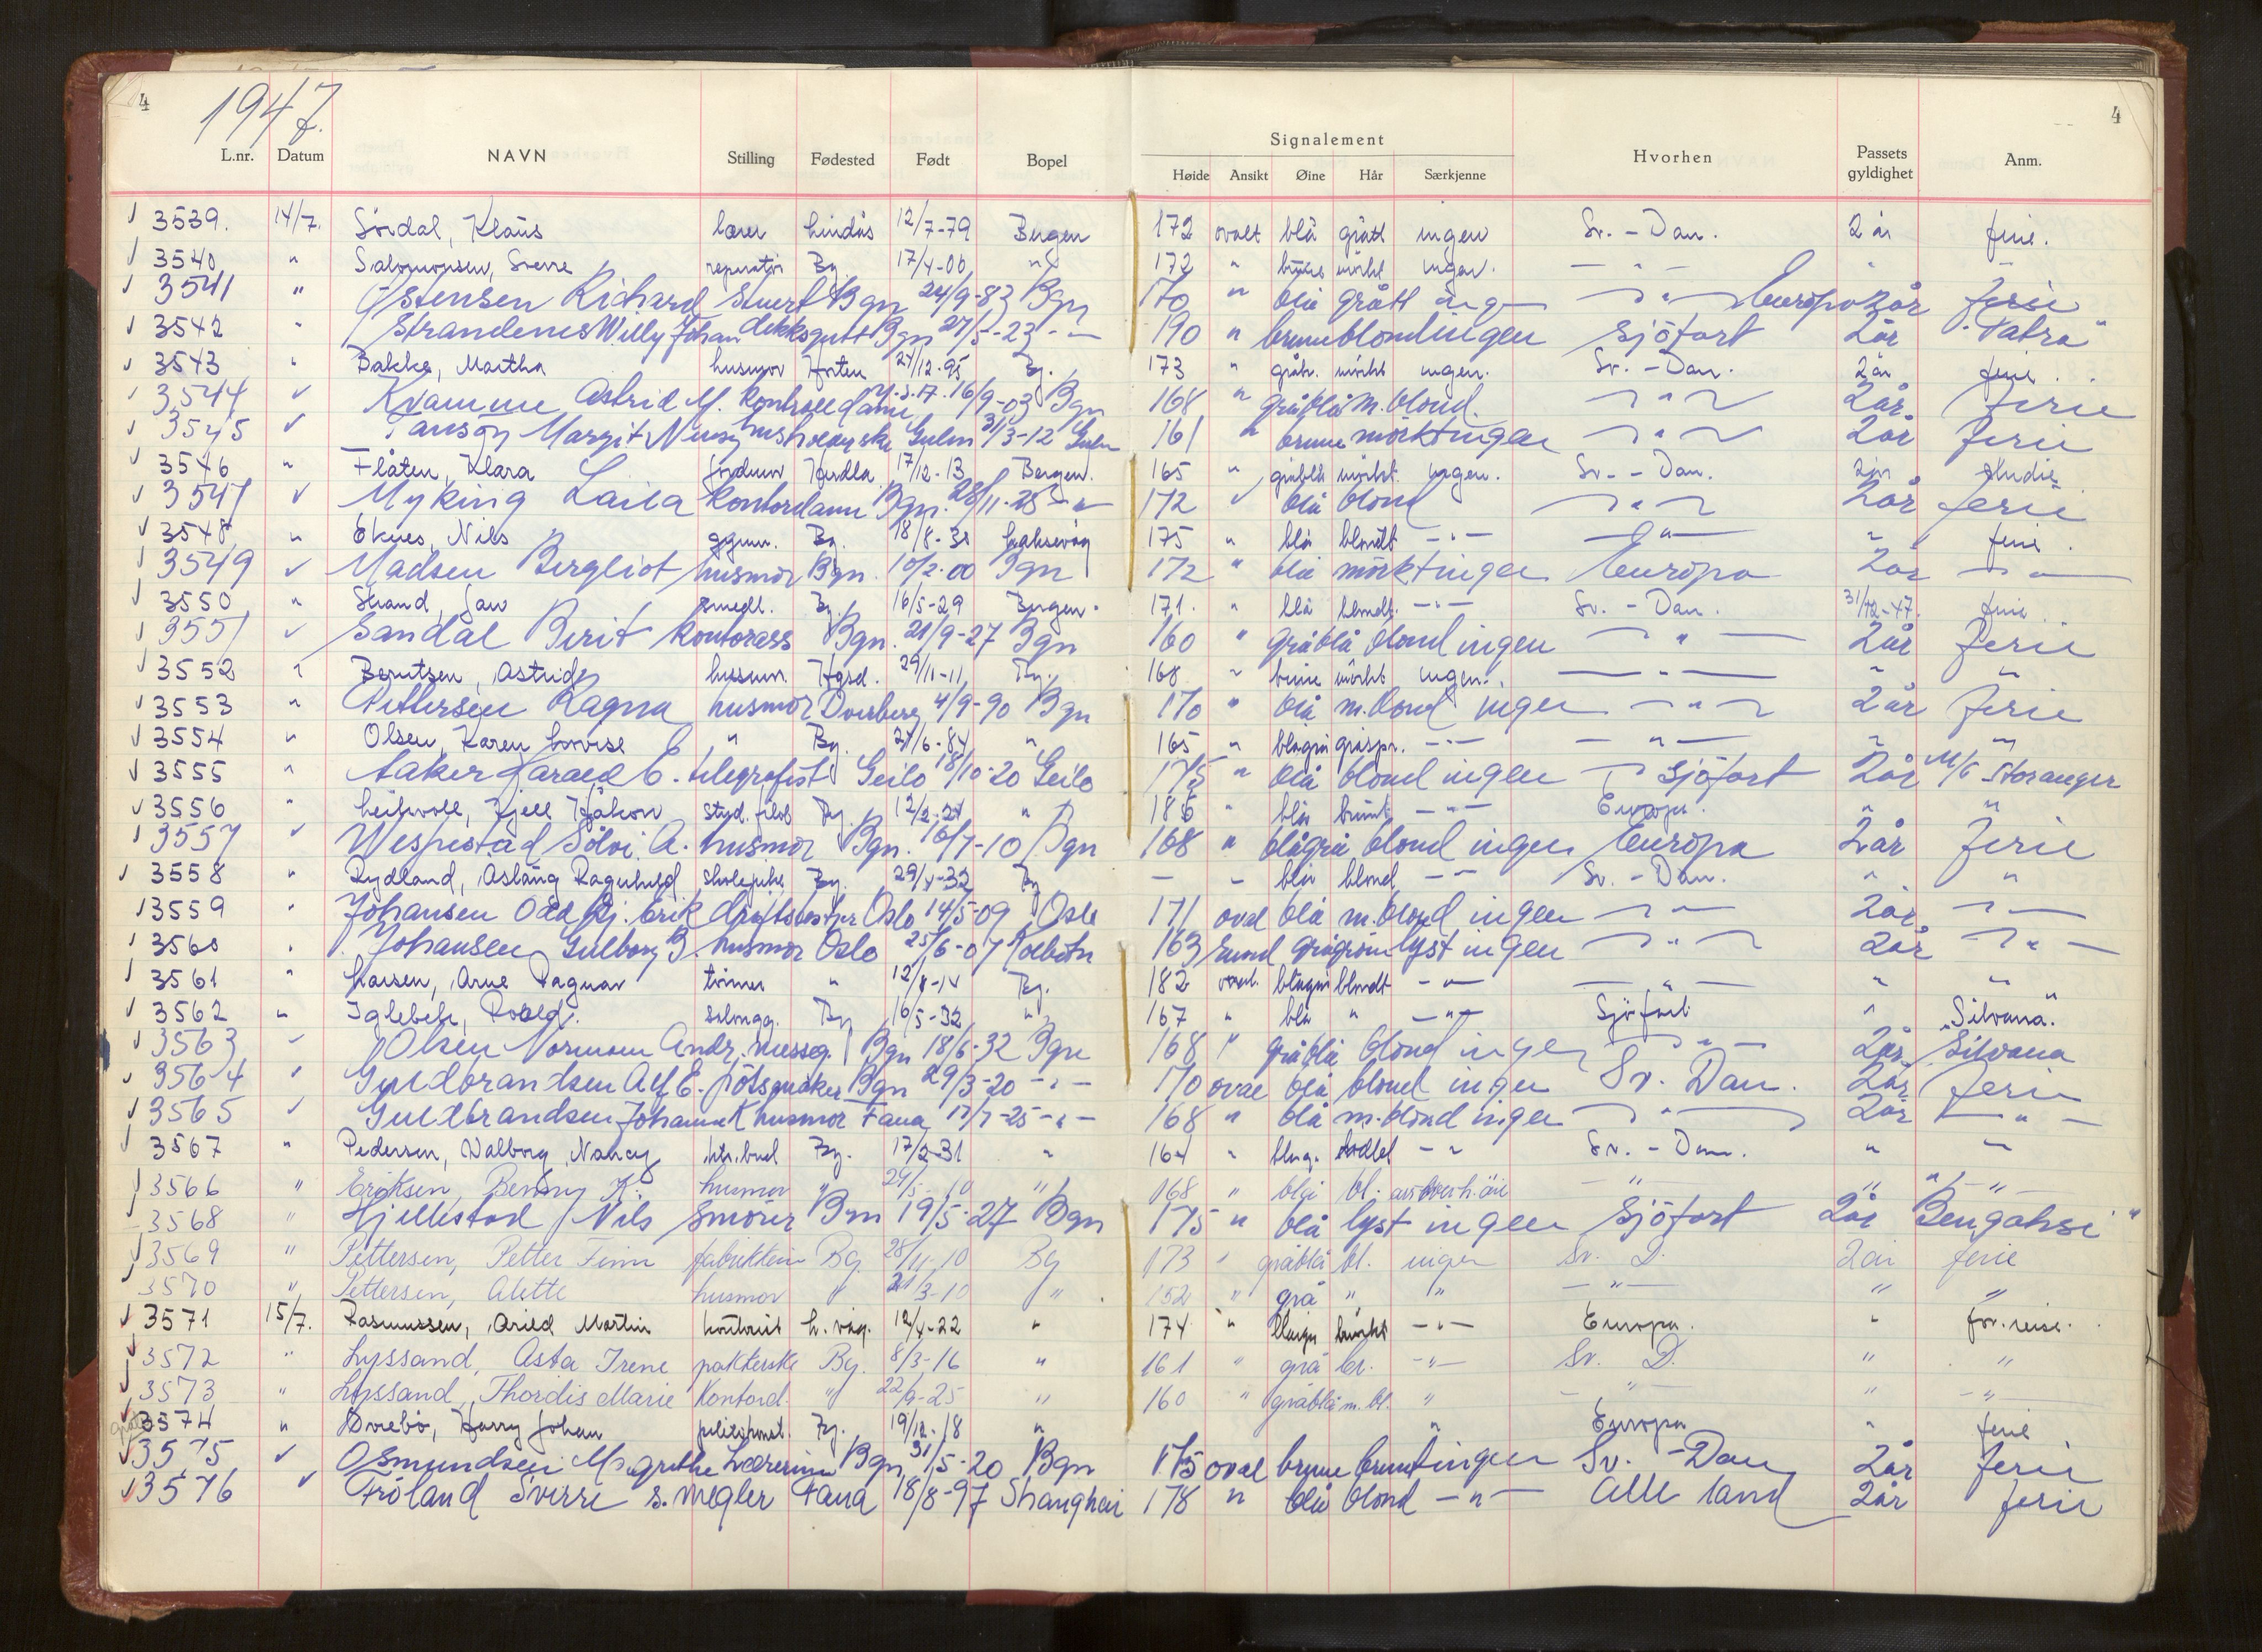 4 1947. 4
Signalement
L.nr. Datum NAVN Stilling Fødested Født Bopel Høide Ansikt Øine Hår Særkjenne Hvorhen Passets gyldighet Anm.
3539. 14/7. Sördal, Klaus lærer Lindås 12/7-79 Bergen 172 ovalt blå grått ingen Sv. - Dan. 2 år ferie.
3540 " Salomonsen, Sverre reparatör Bg. 17/4-00 " 172 " brune mörkt ingen. - " -
3541 " Östensen Richard Stuert Bgn 24/9-83 Bgn 170 " blå grått ing - " - Europa 2år ferie
3542 " Strandenes Willy Johan dekksgutt Bgn 27/5-23 - " - 190 " brune blond ingen Sjöfart 2år "Vatra"
3543 " Bakke, Martha husmor Horten 24/12-95 Bg. 173 " gråbr. mörkt ingen. Sv. - Dan. 2 år ferie.
3544 Kvamme Astrid M. Kontrolldame 16/9-03 Bgn 168 " gråblå m.blond. - " - 2år. Ferie
3545 Tansöy Margit Nensy husholderske Gulen 31/3-12 Gulen 161 " brune mörkt ingen - " - 2år Ferie
3546 " Flåten, Klara jordmor Herdla 17/12-13 Bergen. 165 " gråblå mörkt ingen. Sv. - Dan. 2år studie
3547 Myking Laila kontordame Bgn. 28/11-25 - " - 172 blå blond - " - 2år ferie
3548 " Eknes, Nils gymn. Bg. 18/8-30 Laksevåg 175 " blå blondt - " - - " - " ferie.
3549 Madsen Bergliot husmor Bgn. 10/2-00 Bgn 172 " blå mörkt ingen Europa 2år - " -
3550 " Strand, Jan Bg. 16/5-29 Bergen. 171. " blå blondt. - " - Sv. - Dan. 31/12-47. ferie
3551 Sandal Berit kontorass Bgn. 21/9-27 Bgn 160 " gråblå blond ingen - " - 2år ferie
3552 " Berntsen, Astrid Hgsd. 29/11-11 Bg. 168 " brune mörkt ingen. - " - " "
3553 " Pettersen Ragna husmor Overberg 4/9-90 Bgn 170 " blå m.blond ingen - " - 2år ferie
3554 " Olsen, Karen Lovise " Bg. 27/6-84 " 165 " blågrå gråspr. - " - - " - " "
3555 " Aaker Harald E. telegrafist Geilo 18/10-20 Geilo 175 " blå blond ingen Sjöfart 2år M/S Storanger
3556 " Leikvoll, Kjell Håkon stud.filol Bg. 12/2-24 " 186 " blå brunt - " - Europa. " "
3557 Wespestad Solvi A. husmor Bgn. 16/7-10 Bgn 168 " blågrå blond ingen Europa 2år ferie
3558 " Rydland, Aslaug Ragnhild skolepike Bg. 29/4-32 Bg - - blå blond - - Sv. - Dan. " "
3559 " Johansen Odd Kj. Erik Oslo 14/5-09 Oslo 171 oval blå m.blond ingen - " - 2år - " -
3560 " Johansen Gulborg B. husmor Oslo 25/6-07 Kolbotn 163 rund grågrön lyst ingen - " - 2år - " -
3561 " Larsen, Arne Ragnar tömrer " 12/8-14 Bg. 182 ovalt. blågrå blondt - " - - " - " "
3562 " Iglebek, Roald. salongg. Bg 16/5-32 " 167 " blå " - " - Sjöfart " "Silvana".
3563 Olsen Normann Andr. messeg. Bgn 18/6-32 Bgn 168 " gråblå blond ingen - " - 2år Silvana
3564 Guldbrandsen Alf E. Bgn 29/3-20 - " - 170 oval blå blond ingen Sv. Dan. 2år ferie
3565 Guldbrandsen Johanne K husmor Fana 17/7-25 - " - 168 " blå m.blond ingen - " - 2år - " -
3567 " Pedersen, Walborg, Nancy ktr.bud Bg. 17/2-31 " 164 " blåg. rödbl - " Sv. - Dan. " "
3566 " Eriksen, Benny K. husmor " 24/5-10 " 168 " blå bl. arr over h. öie - " - " - " -
3568 " Hjellestad Nils Smörer Bgn 19/5-27 Bgn 175 " blå lyst ingen Sjöfart 2år "Bengahsi"
3569 " Pettersen, Petter Finn Bg. 28/11-10 Bg 173 " gråblå bl. ingen Sv. D. 2år ferie
3570 " Pettersen, Alette husmor " 21/3-10 " 152 " grå " " - " - " "
3571 15/7. Rasmussen, Arild Martin kontorist L. våg. 12/4-22 " 174 " blågrå mörkt - " - Europa. " for.reise.
3572 " Lyssand, Asta Irene pakterske Bg. 8/3-16 " 161 " grå br. - " - Sv. D. " "
3573 " Lyssand, Thordis Marie Kontord. " 22/9-25 " 160 " gråblå m.bl. " - " - " - " -
3574 " Dvrebö, Harry Johan politikonst. Bg. 19/12-18 " " Europa " ferie
3575 Osmundsen Margrethe Lærerinne Bgn 31/5-20 Bgn 175 oval brune brunt ingen Sv. - Dan 2år ferie
3576 Fröland Sverre s.megler Fana 18/8-97 Shanghai 178 " blå blond - " - Alle land 2år ferie